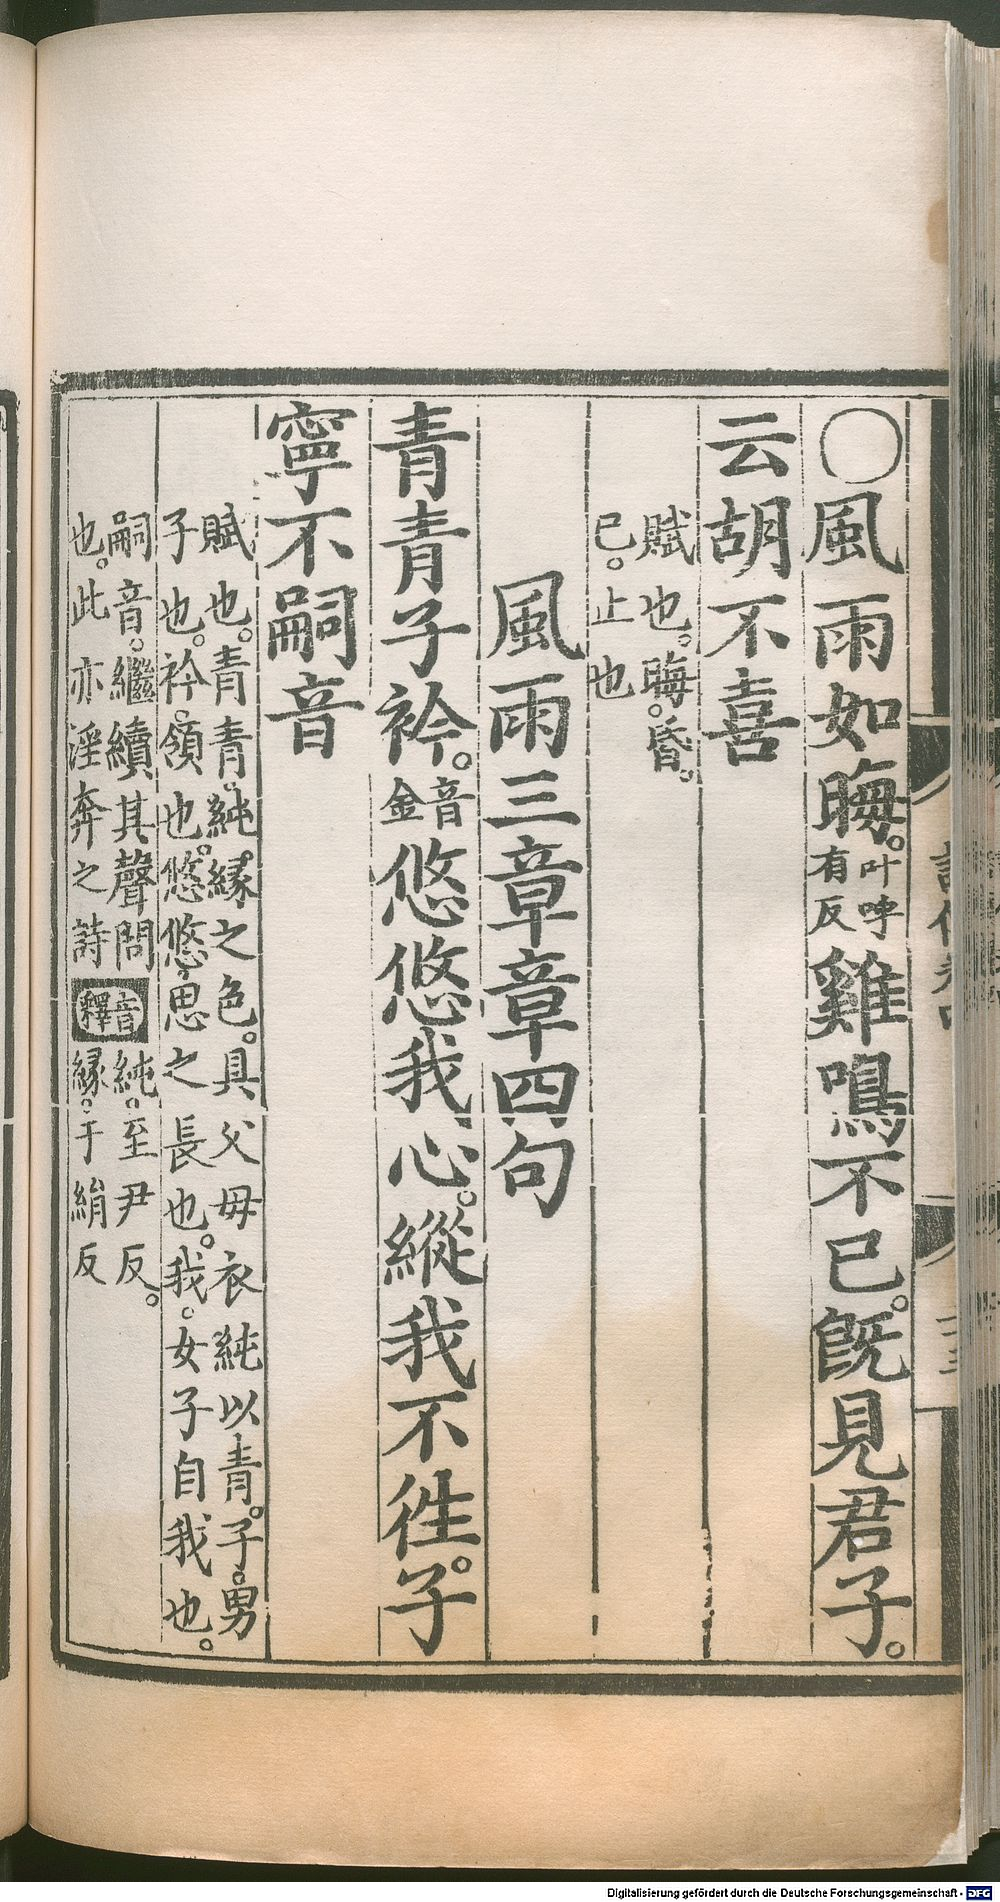 ○風雨如晦。叶呼有反雞鳴不已。旣見君子。
云胡不喜
賦也。晦。昏。
已。止也
風雨三章章四句
青青子衿。音金悠悠我心。縱我不徃。子
寧不嗣音
賦也。青青。純緣之色。具父母衣純以青。子。男
子也。衿。領也。悠悠。思之長也。我。女子自我也。
嗣音。繼續其聲問
也。此亦淫奔之詩
音釋
純。至尹反。
緣。于絹反
Digitalisierung gefördert durch die Deutsche Forschungsgemeinschaft - DFG